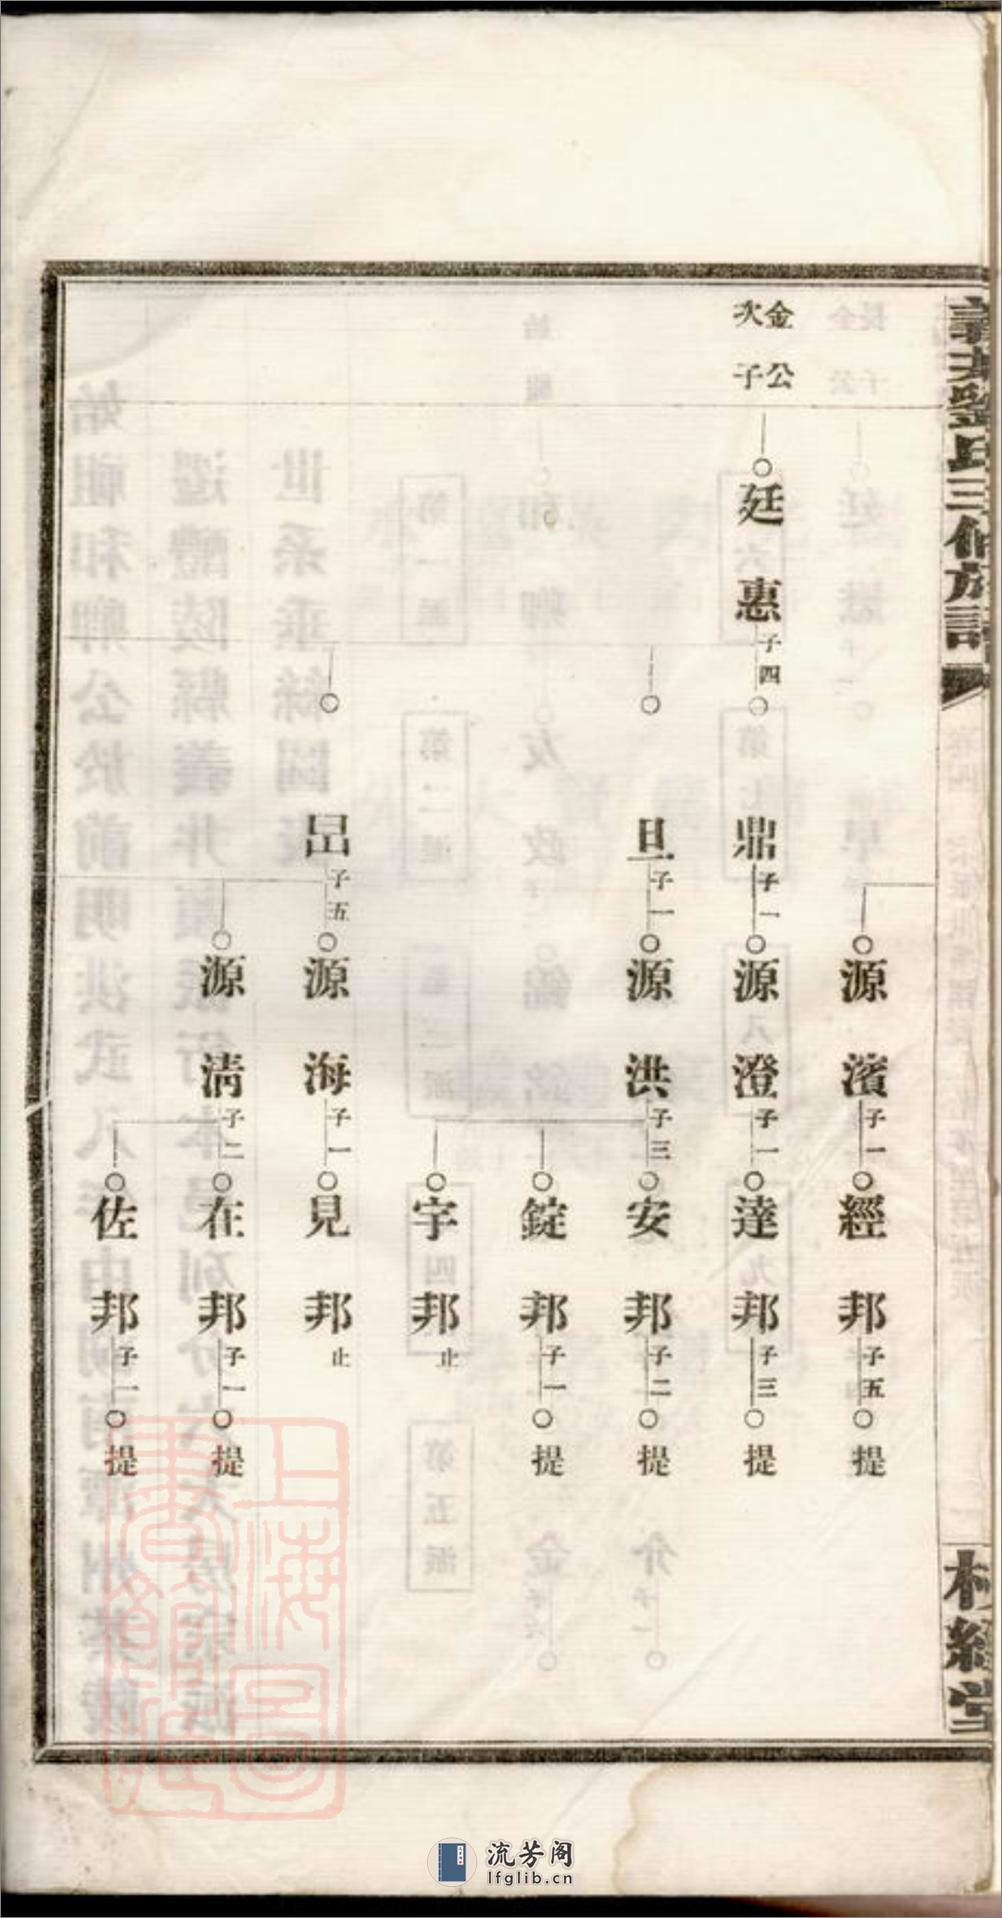 義井劉氏三修族譜
校經堂
金公
次子
廷惠
子四
鼎
子一
旦
子一
昌
子五
源濱
子一
源澄
子一
源洪
子三
源海
子一
源清
子二
經邦
子五
提
達邦
子三
提
安邦
子二
提
錠邦
子一
提
宇邦
止
見邦
止
在邦
子一
提
佐邦
子一
提
上海圖書館藏
流芳阁
lfglib.cn